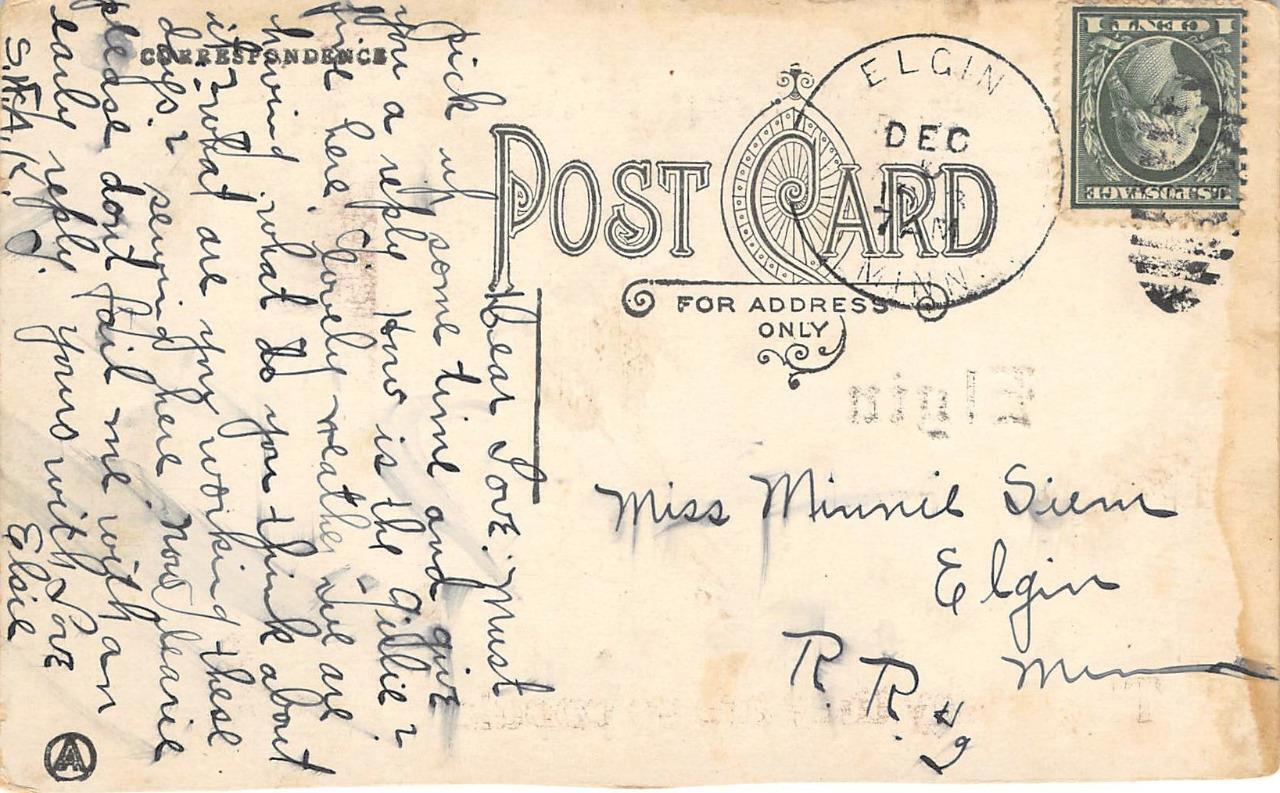 CORRESPONDENCE
POST CARD
FOR ADDRESS
ONLY
ELGIN
DEC
7 M
MINN
1 CENT 1
U.S. POSTAGE
Elgin
Dear Love: Must
pick up some time and give
you a reply How is the Gillie?
fine here. Lovely weather we are
having what do you think about
it? what are you working these
days? sewing here. Now Minnie
please dont fail me with an
early reply. yours with Love
S.W.A.K. Elsie
Miss Minnie Siem
Elgin
Minn
R.R. #2
A